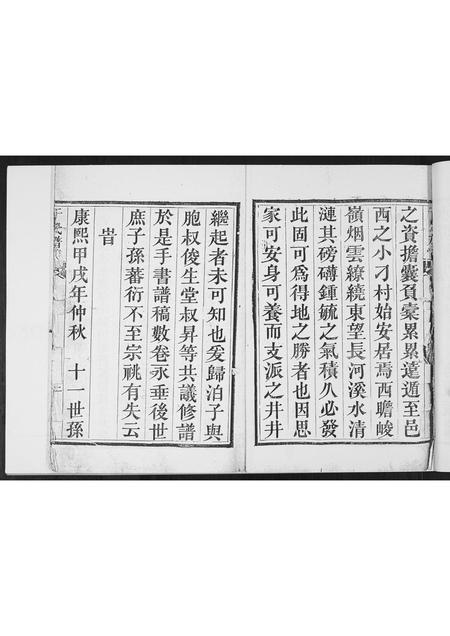 之資擔囊負橐累累蘧遁至邑
西之小刁村始安居焉西瞻峻
嶺烟雲繚繞東望長河溪水清
漣其磅礴鍾毓之氣積久必發
此固可爲得地之勝者也因思
家可安身可養而支派之井井
繼起者未可知也爰歸泊子與
胞叔俊生堂叔昇等共議修譜
於是手書譜稿數卷永垂後世
庶子孫蕃衍不至宗祧有失云
旹
康熙甲戌年仲秋 十一世孫
于氏譜